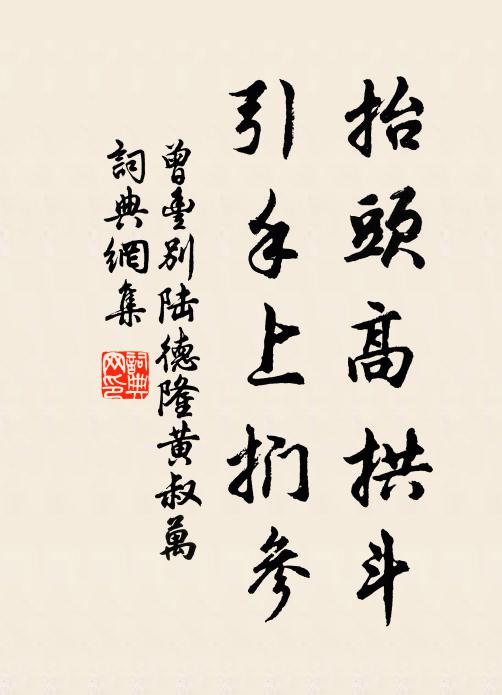 抬頭高拱斗
引手上捫參
曾豐別陸德隆黄叔萬
詞典網集
詞典網印